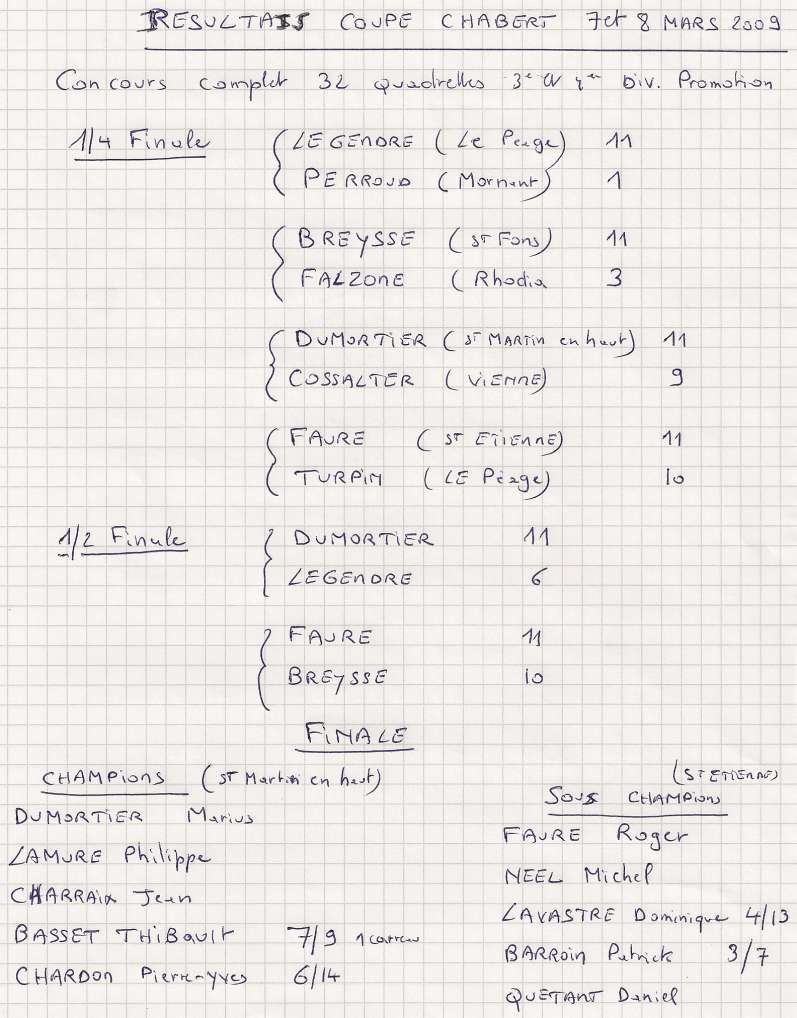 RESULTATS COUPE CHABERT 7 et 8 MARS 2009
Concours complet 32 Quadrettes 3e et 4em Div. Promotion
1/4 Finale
LEGENDRE (Le Peage) 11
PERROUD (Mornant) 1
BREYSSE (St Fons) 11
FALZONE (Rhodia 3
DUMORTIER (ST MARTIN en haut) 11
COSSALTER (VIENNE) 9
FAURE (ST ETIENNE) 11
TURPIN (LE Péage) 10
1/2 Finale
DUMORTIER 11
LEGENDRE 6
FAURE 11
BREYSSE 10
FINALE
CHAMPIONS (ST Martin en haut)
DUMORTIER Marius
LAMURE Philippe
CHARRAIX Jean
BASSET THIBAULT 7/9 1 carreau
CHARDON Pierre-yves 6/14
(ST ETIENNE)
SOUS CHAMPIONS
FAURE Roger
NEEL Michel
LAVASTRE Dominique 4/13
BARROIN Patrick 3/7
QUETANT Daniel